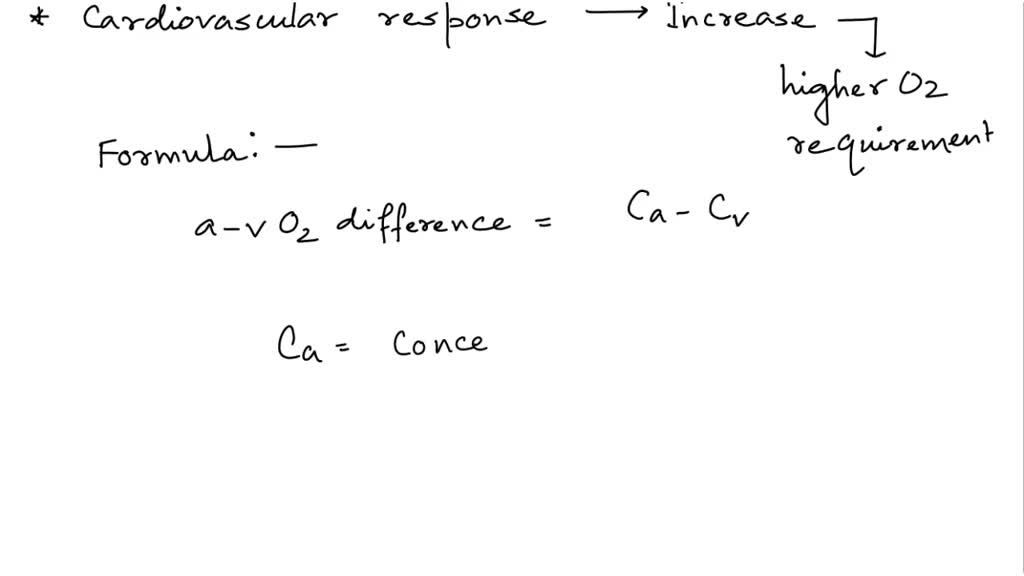 * Cardiovascular response → Increase
higher O2
requirement
Formula: —
a-v O₂ difference = Ca - Cv
Ca = Conce